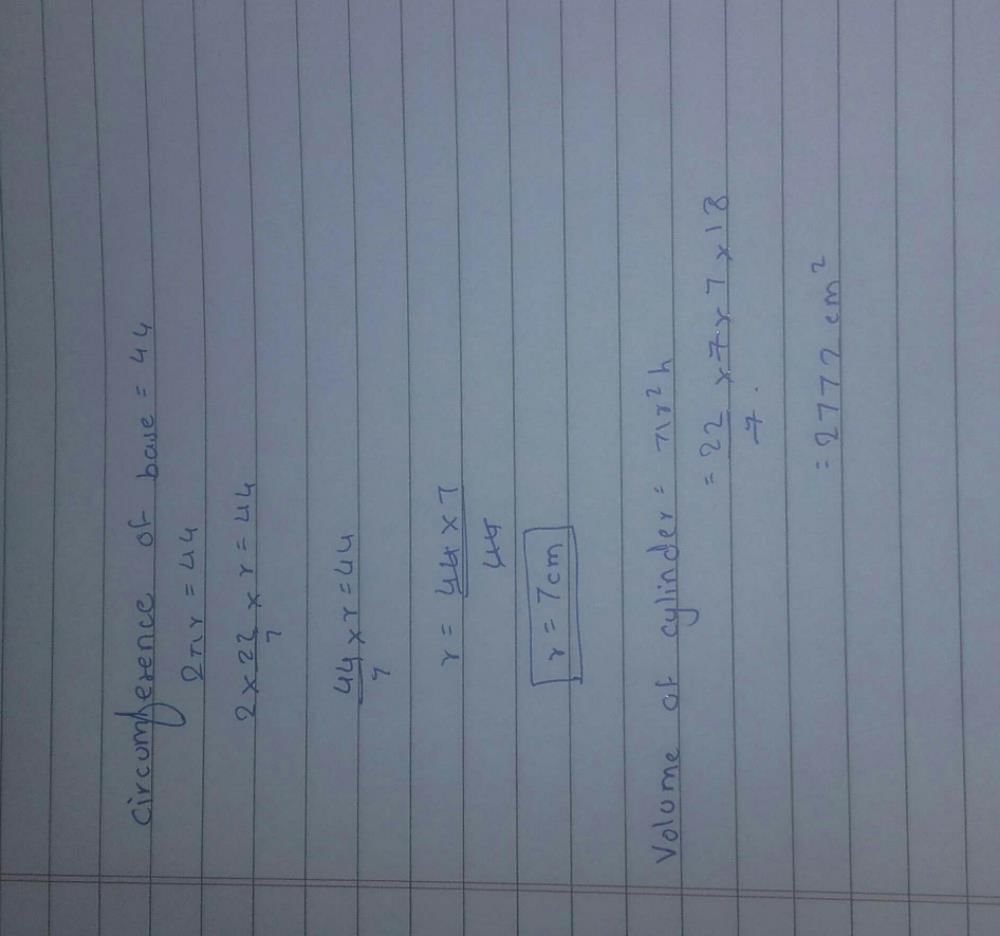 Circumference of base = 44
2πr = 44
2 x 22/7 x r = 44
44/7 x r = 44
r = 44 x 7/44
r = 7cm
Volume of cylinder = πr²h
= 22/7 x 7 x 7 x 18
= 2772 cm²